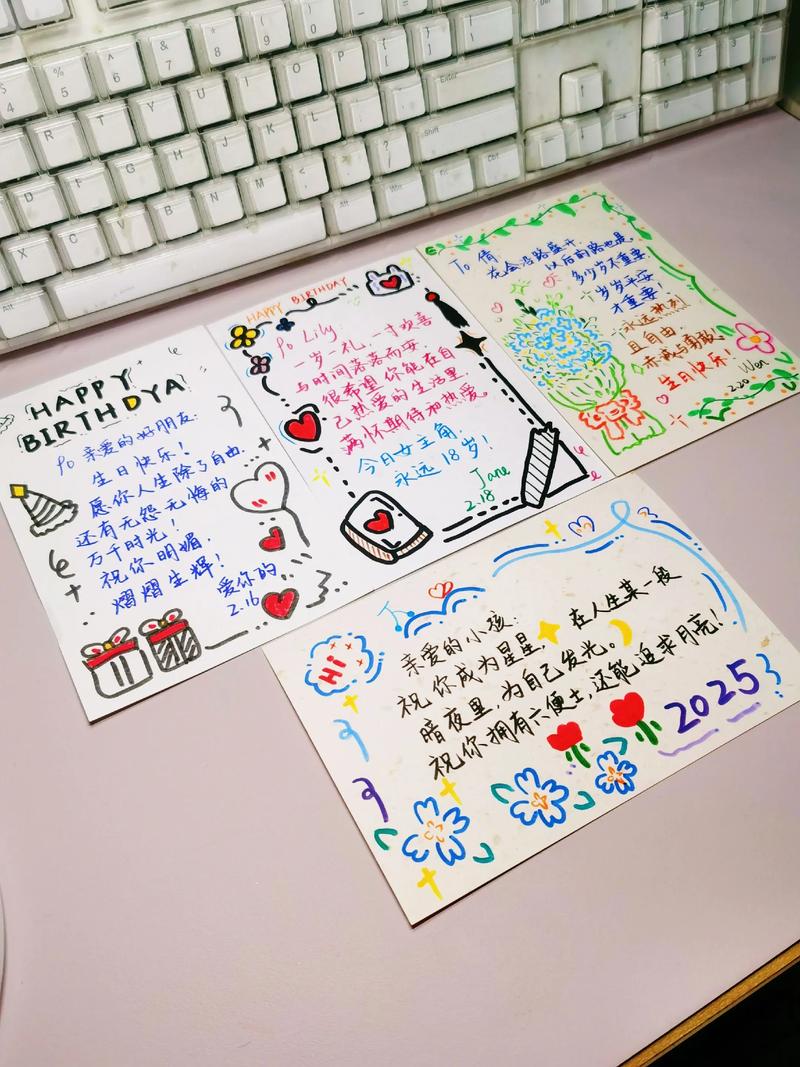 $ 4 % 5 ^ 6 & 7 * 8 ( 9 ) 0
R T Y U I O P { [ } ] Enter
D F G H J K L
C V B N M < , Shift
Alt Alt Win Ctrl
HAPPY
BIRTHDYA
Po 亲爱的好朋友:
生日快乐!
愿你人生除了自由
还有无怨无悔的
万千时光!
祝你明媚
熠熠生辉!
爱你的
2.16
HAPPY BIRTHDAY
Po Lily:
一岁一礼,一寸欢喜
与时间落落而安
很希望你能在自
己热爱的生活里
满怀期待和热爱。
今日女主角,
永远18岁!
Jane
2.18
To 倩
花会沿路盛开,
以后的路也是
多少岁不重要
岁岁平安
才重要!
永远热烈
且自由,
赤诚与勇敢
生日快乐!
Wen
2.20
Hi
亲爱的小孩:
祝你成为星星, 在人生某一段
暗夜里,为自己发光。
祝你拥有六便士,还能追求月亮!
2025